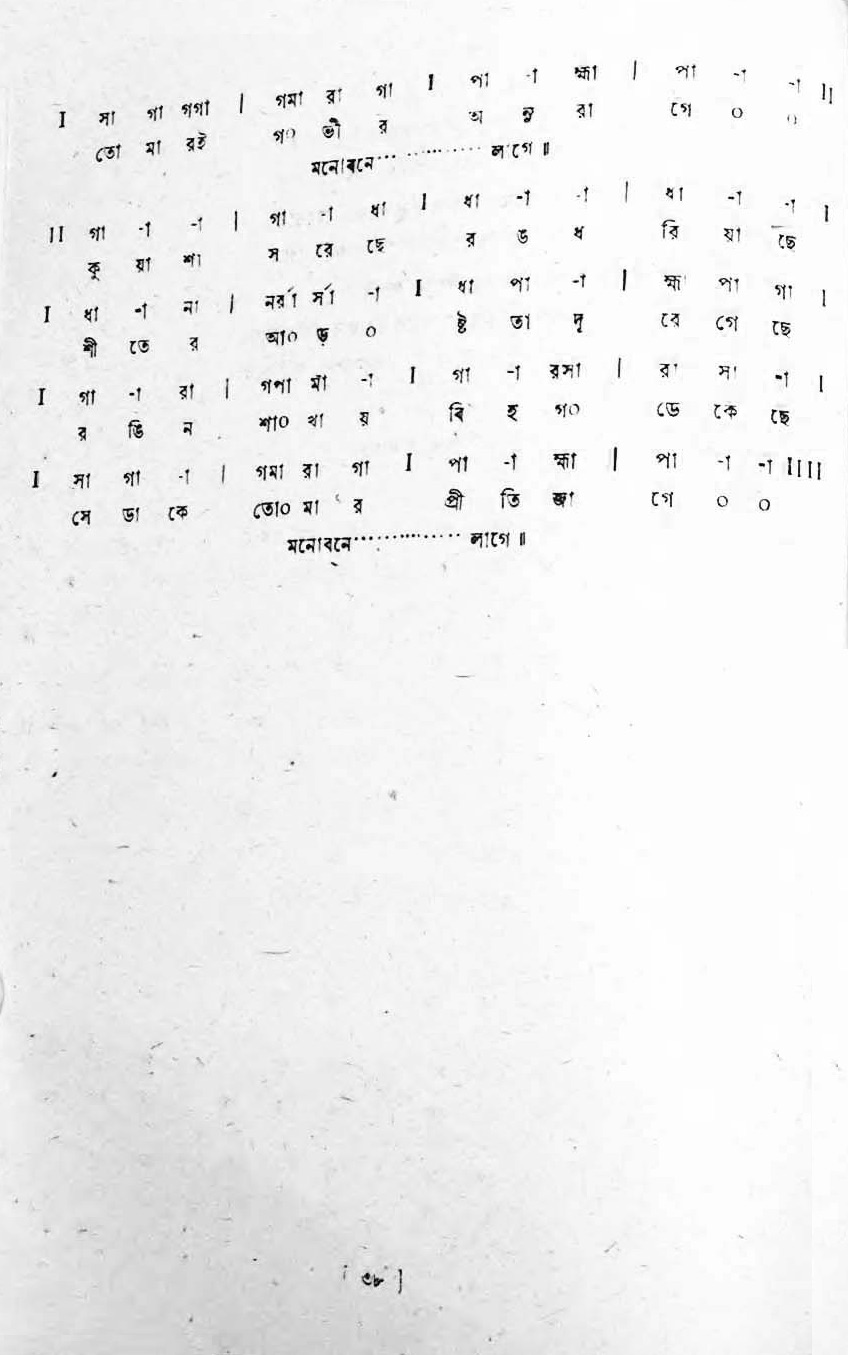 I সা গা গগা | গমা রা গা I পা -া হ্মা | পা -া -া II
তো মা রই গ০ ভী র অ নু রা গে ০ ০
মনোবনে·················লাগে॥
II গা -া -া | গা -া ধা I ধা -া -া | ধা -া -া I
কু য়া শা স রে ছে র ঙ ধ রি য়া ছে
I ধা -া না | নর্রা র্সা -া I ধা পা -া | হ্মা পা গা I
শী তে র আ০ ড় ০ ষ্ট তা দূ রে গে ছে
I গা -া রা | গপা মা -া I গা -া রসা | রা সা -া I
র ঙি ন শা০ খা য় বি হ গ০ ডে কে ছে
I সা গা -া | গমা রা গা I পা -া হ্মা | পা -া -া IIII
সে ডা কে তো০ মা র প্রী তি জা গে ০ ০
মনোবনে·················লাগে॥
[ ৩৮ ]